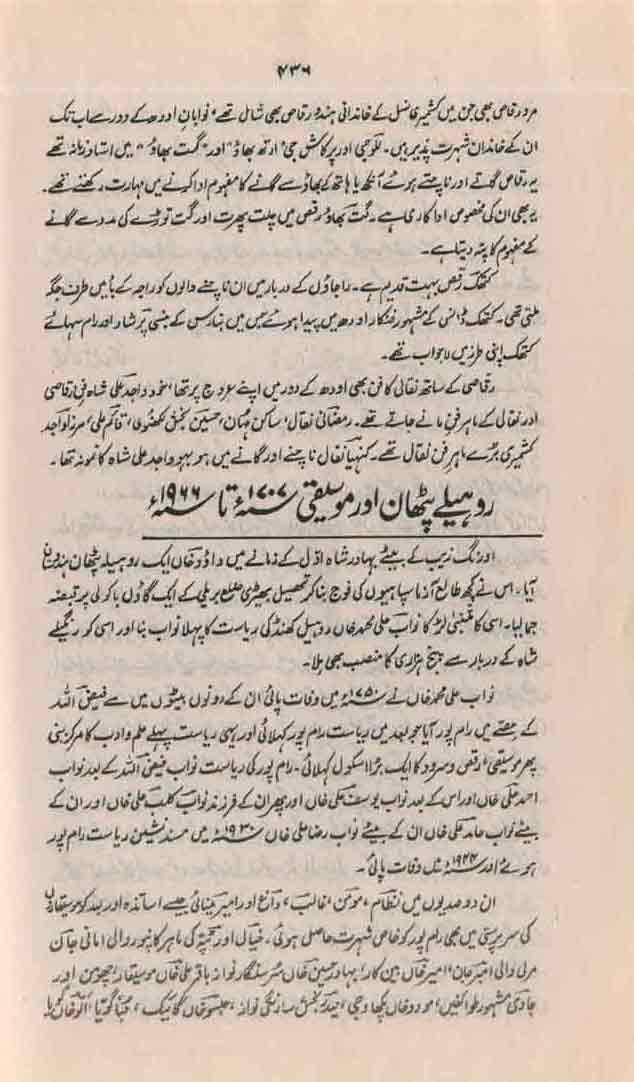 ۴۳۶
مرد رقاص بھی جن میں کشمیری فاضل کے خاندانی ہندو رقاص بھی شامل تھے، نوابانِ اودھ کے دور سے اب تک
ان کے خاندان شہرت پذیر ہیں۔ للوجی اور پرکاش جی "ارتھ بھاؤ" اور "گت بھاؤ" میں استاد زمانہ تھے
یہ رقاص گاتے اور ناچتے ہوئے آنکھ یا ہاتھ کے بھاؤ سے گانے کا مفہوم ادا کرنے میں مہارت رکھتے تھے۔
یہ بھی ان کی مخصوص اداکاری ہے۔ گت بھاؤ رقص میں چلت پھرت اور گت توڑے کی مدد سے گانے
کے مفہوم کا پتہ دیتا ہے۔
کتھک رقص بہت قدیم ہے۔ راجاؤں کے دربار میں ان ناچنے والوں کو راجہ کے بائیں طرف جگہ
ملتی تھی۔ کتھک ڈانس کے مشہور فنکار اودھ میں پیدا ہوئے جس میں بنارس کے بنسی پرشاد اور رام سہائے
کتھک اپنی طرز میں لاجواب تھے۔
رقاصی کے ساتھ نقالی کا فن بھی اودھ کے دور میں اپنے عروج پر تھا، خود واجد علی شاہ فنِ رقاصی
اور نقال کے ماہرِ فن مانے جاتے تھے۔ رمضانی نقال، ساکن حسین بخش لکھنوی، قائم علی، مرزا واجد
کشمیری بڑے ماہرِ فن نقال تھے۔ کنہیا نقال ناچنے اور گانے میں ہوبہو واجد علی شاہ کا نمونہ تھا۔
روہیلے پٹھان اور موسیقی ۱۷۰۷ء تا ۱۹۶۶ء
اورنگ زیب کے بیٹے بہادر شاہ اوّل کے زمانے میں داؤد خاں ایک روہیلہ پٹھان
آیا۔ اس نے کچھ طالع آزما سپاہیوں کی فوج بنا کر تحصیل بہیڑی ضلع بریلی کے ایک گاؤں باکولی پر قبضہ
جما لیا۔ اسی کا متبنیٰ لڑکا نواب علی محمد خاں روہیل کھنڈ کی ریاست کا پہلا نواب بنا اور اسی کو رنگیلے
شاہ کے دربار سے پنج ہزاری کا منصب بھی ملا۔
نواب علی محمد خاں نے ۱۷۵۰ء میں وفات پائی ان کے دونوں بیٹوں میں سے فیض اللہ
کے حصّے میں رام پور آیا جو بعد میں ریاست رام پور کہلائی اور یہی ریاست پہلے علم و ادب کا مرکز بنی
پھر موسیقی، رقص و سرود کا ایک بڑا اسکول کہلائی۔ رام پور کی ریاست نواب فیض اللہ کے بعد نواب
احمد علی خاں اور اس کے بعد نواب یوسف علی خاں اور پھر ان کے فرزند نواب کلب علی خاں اور ان کے
بیٹے نواب حامد علی خاں ان کے بیٹے نواب رضا علی خاں ۱۹۳۰ء میں مسند نشین ریاست رام پور
ہوئے اور ۱۹۴۴ء میں وفات پائی۔
ان دو صدیوں میں نظام، مومن، غالب، داغ اور امیر مینائی جیسے اساتذہ اور بعد کو
کی سرپرستی میں بھی رام پور کو خاص شہرت حاصل ہوئی۔ خیال اور کی ماہر کانپور والی امانی جان
مرلی والی اختر جان، امیر خاں بین کار، بہادر حسین خاں سُر سنگار نواز باقر علی خاں موسیقار، چھدّن اور
جادی مشہور طوائفیں، مودو خاں پکھاوجی، حیدر بخش سارنگی نواز، خاں گائیک،